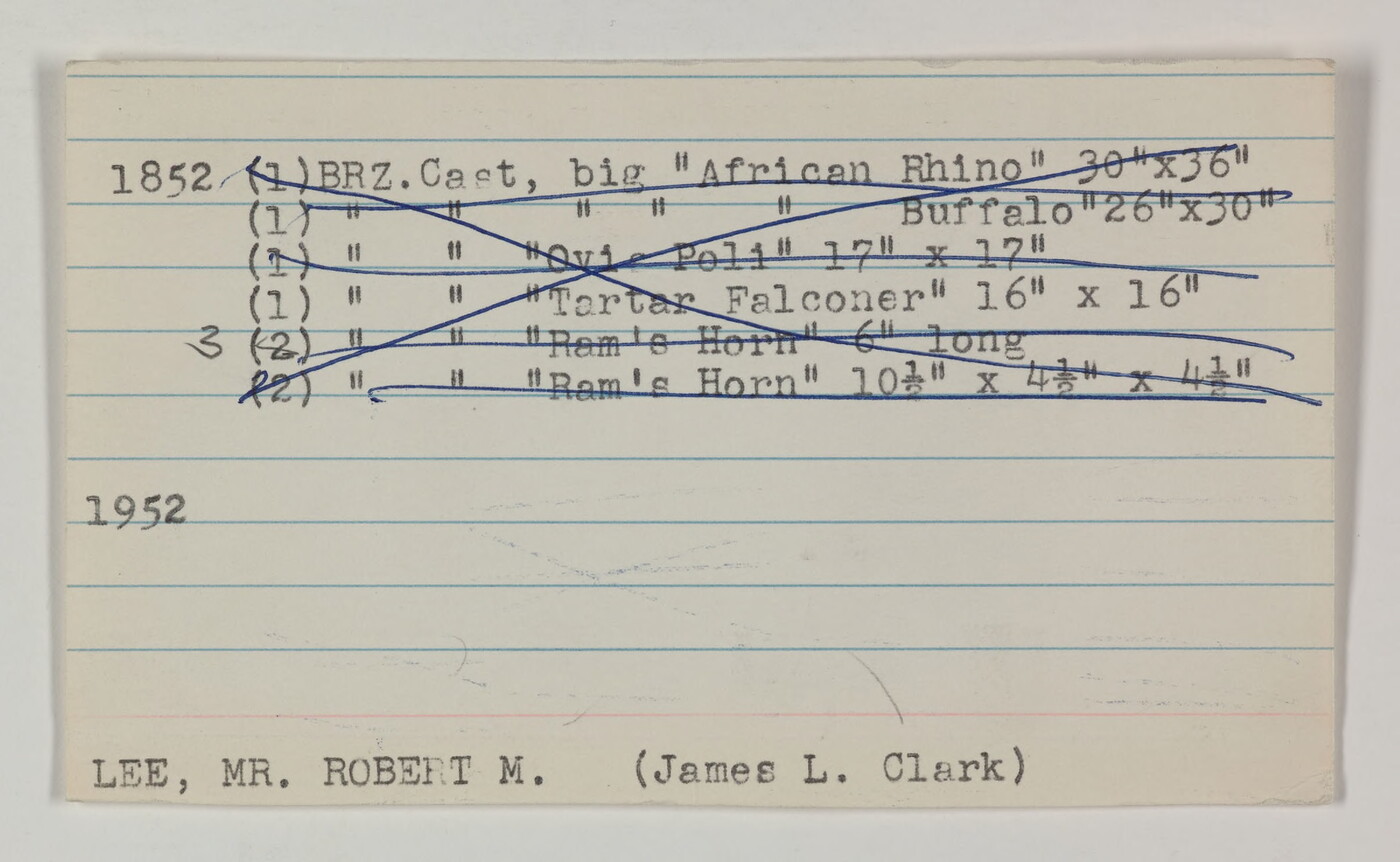 1852 (1)BRZ.Cast, big "African Rhino" 30"x36"
(1) " " " " " Buffalo"26"x30"
(1) " " "Ovis Poli" 17" x 17"
(1) " " "Tartar Falconer" 16" x 16"
3 (2) " " "Ram's Horn" 6" long
(2) " " "Ram's Horn" 10½" x 4½" x 4½"
1952
LEE, MR. ROBERT M. (James L. Clark)